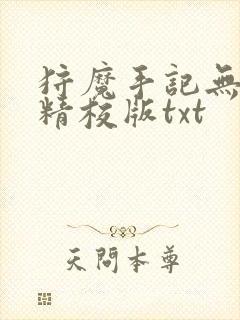 狩魔手記無
精校版txt
天問本尊